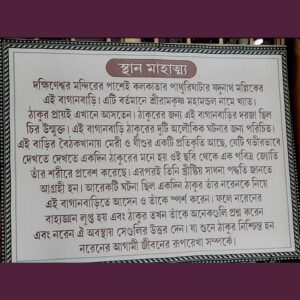 স্থান মাহাত্ম্য
দক্ষিণেশ্বর মন্দিরের পাশেই কলকাতার পাথুরিঘাটার যদুনাথ মল্লিকের
এই বাগানবাড়ি। এটি বর্তমানে শ্রীরামকৃষ্ণ মহামন্ডল নামে খ্যাত।
ঠাকুর প্রায়ই এখানে আসতেন। ঠাকুরের জন্য এই বাগানবাড়ির দরজা ছিল
চির উন্মুক্ত। এই বাগানবাড়ি ঠাকুরের দুটি অলৌকিক ঘটনার জন্য পরিচিত।
এই বাড়ির বৈঠকখানায় মেরী ও যীশুর একটি প্রতিকৃতি আছে, যেটি গভীরভাবে
দেখতে দেখতে একদিন ঠাকুরের মনে হয় ওই ছবি থেকে এক পবিত্র জ্যোতি
তাঁর শরীরে প্রবেশ করেছে। এরপরই তিনি খ্রীষ্টীয় সাধনা পদ্ধতি জানতে
আগ্রহী হন। আরেকটি ঘটনা ছিল একদিন ঠাকুর তাঁর নরেনকে নিয়ে
এই বাগানবাড়িতে আসেন ও তাঁকে স্পর্শ করেন। ফলে নরেনের
বাহ্যজ্ঞান লুপ্ত হয় এবং ঠাকুর তখন তাঁকে অনেকগুলি প্রশ্ন করেন
এবং নরেন ঐ অবস্থায় সেগুলির উত্তর দেন। যা শুনে ঠাকুর নিশ্চিন্ত হন
নরেনের আগামী জীবনের রূপরেখা সম্পর্কে।